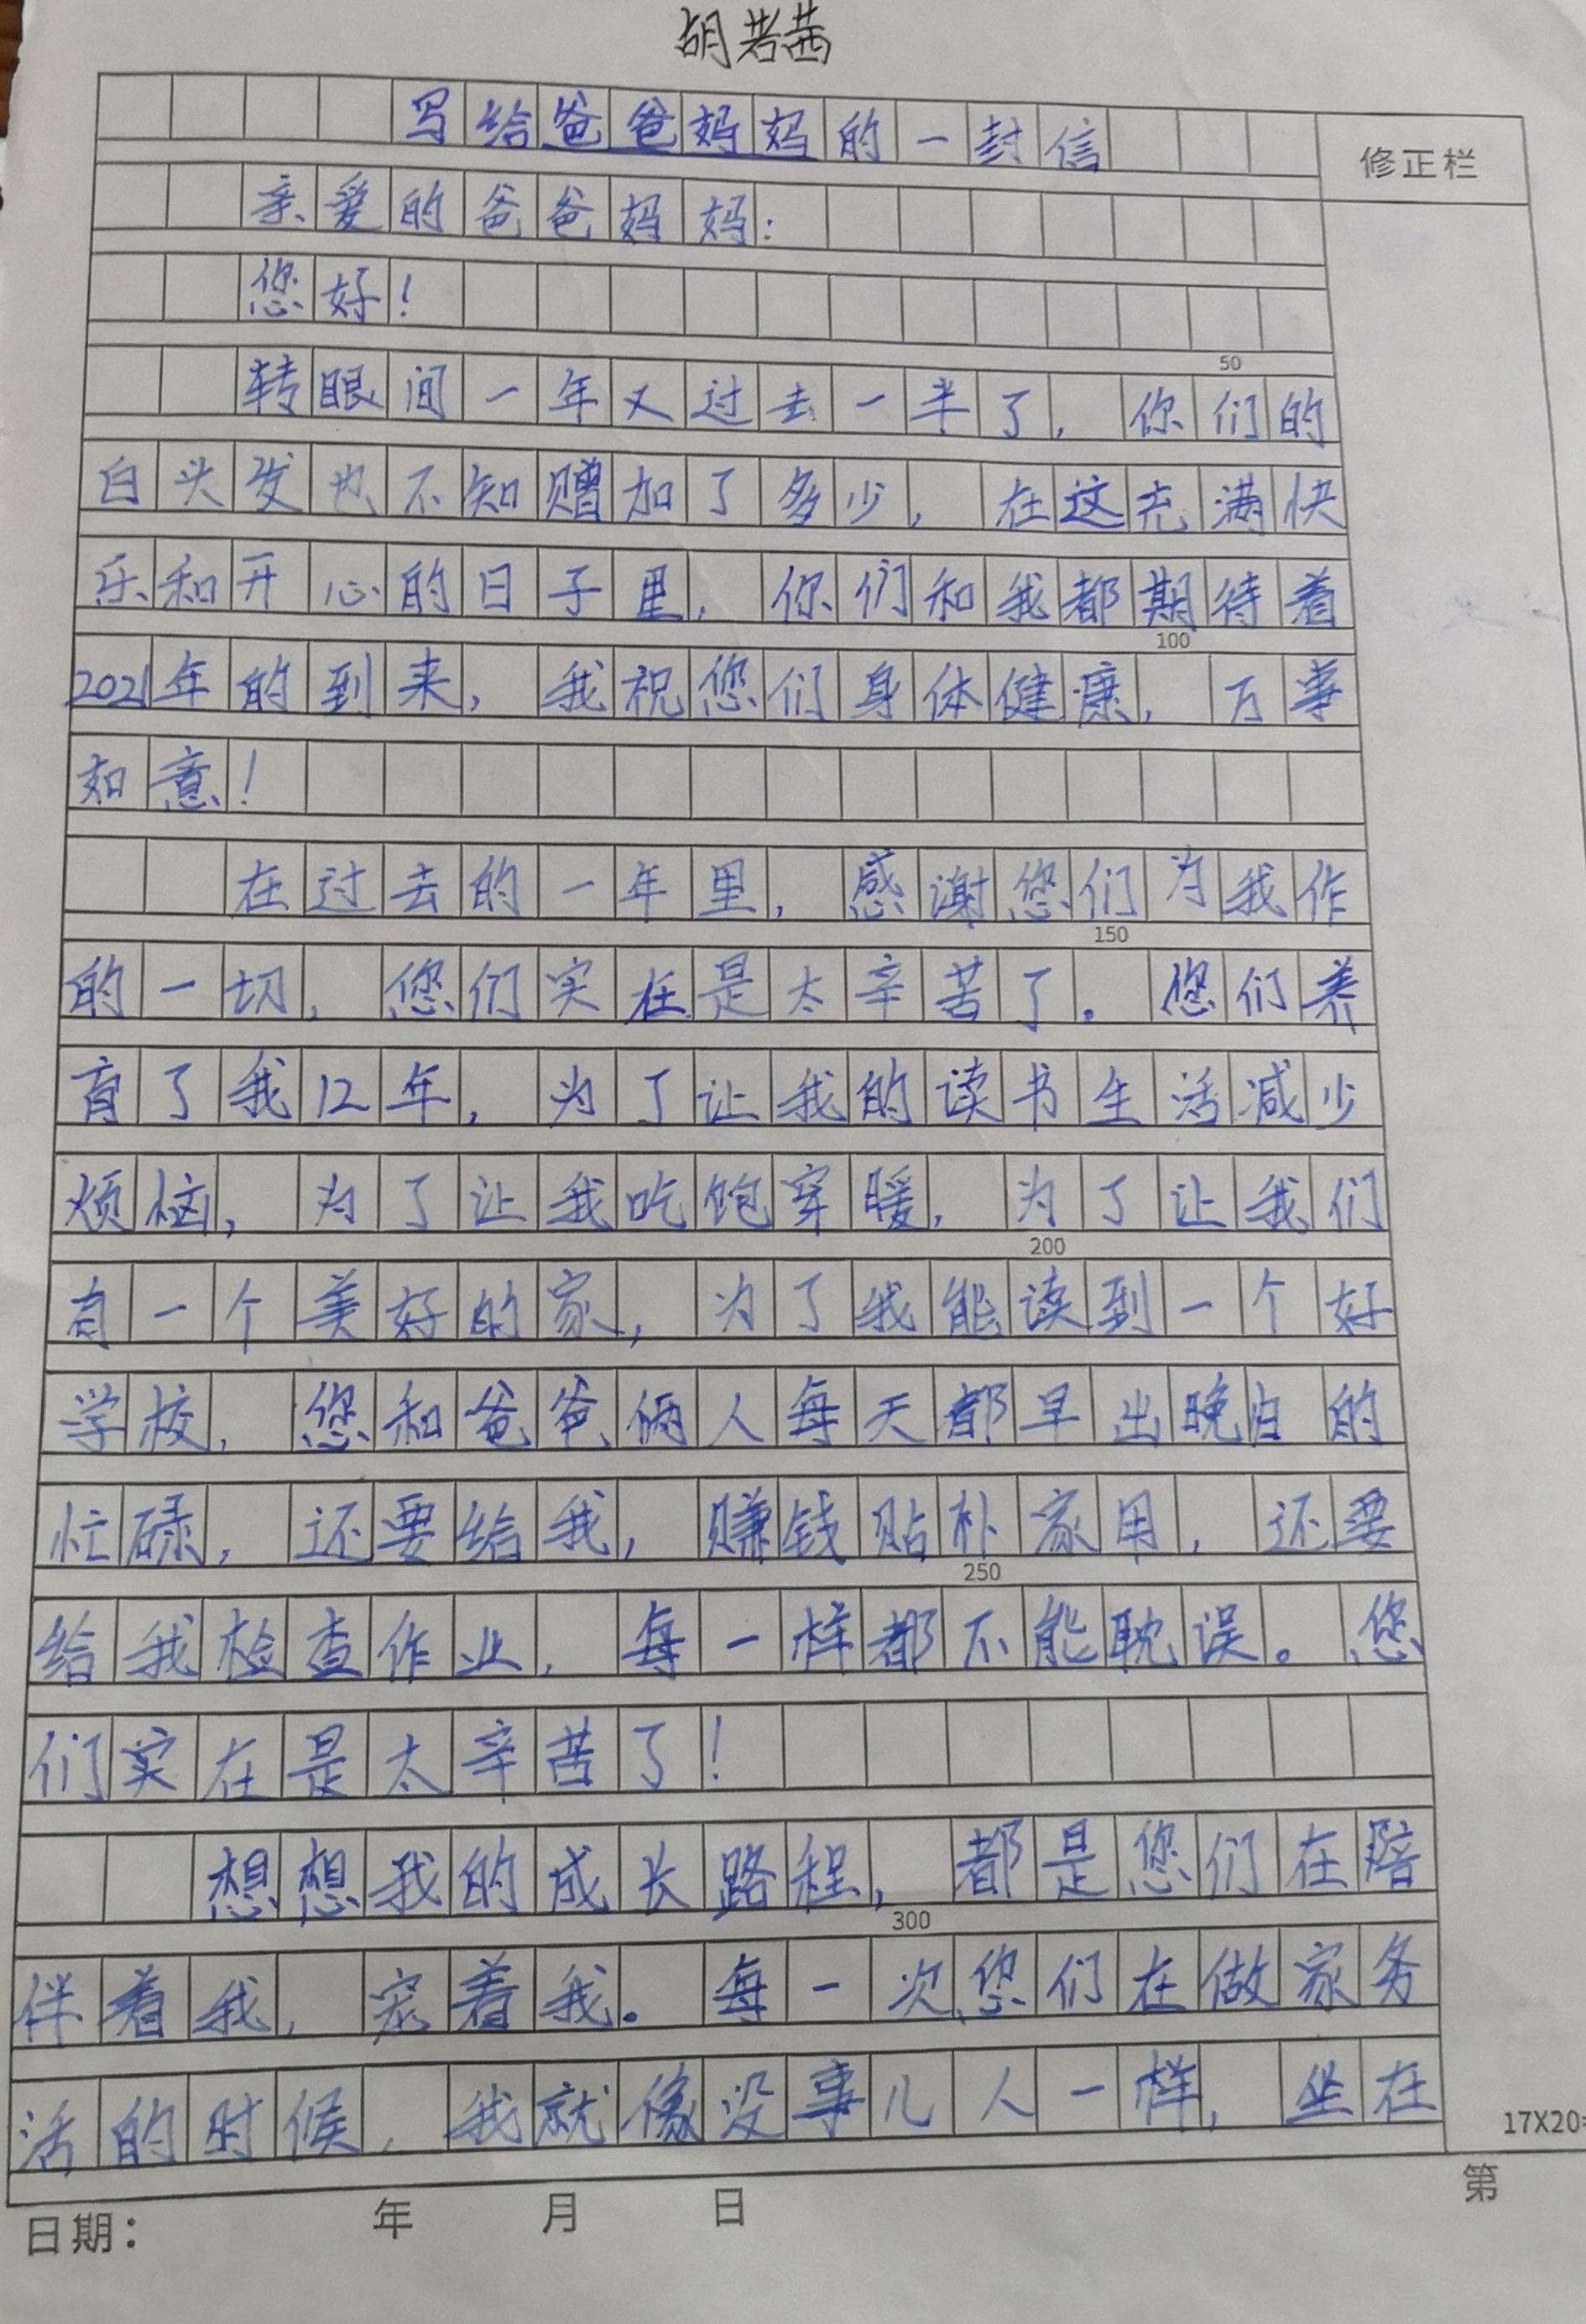 胡若茜
写给爸爸妈妈的一封信
修正栏
亲爱的爸爸妈妈:
您好!
50
转眼间一年又过去一半了,你们的
白头发也不知赠加了多少,在这充满快
乐和开心的日子里,你们和我都期待着
100
2021年的到来,我祝您们身体健康,万事
如意!
在过去的一年里,感谢您们为我作
150
的一切,您们实在是太辛苦了。您们养
育了我12年,为了让我的读书生活减少
烦恼,为了让我吃饱穿暖,为了让我们
200
有一个美好的家,为了我能读到一个好
学校,您和爸爸俩人每天都早出晚归的
忙碌,还要给我,赚钱贴朴家用,还要
250
给我检查作业,每一样都不能耽误。您
们实在是太辛苦了!
想想我的成长路程,都是您们在陪
300
伴着我,宠着我。每一次您们在做家务
活的时候,我就像没事儿人一样,坐在
17X20=
日期: 年 月 日
第